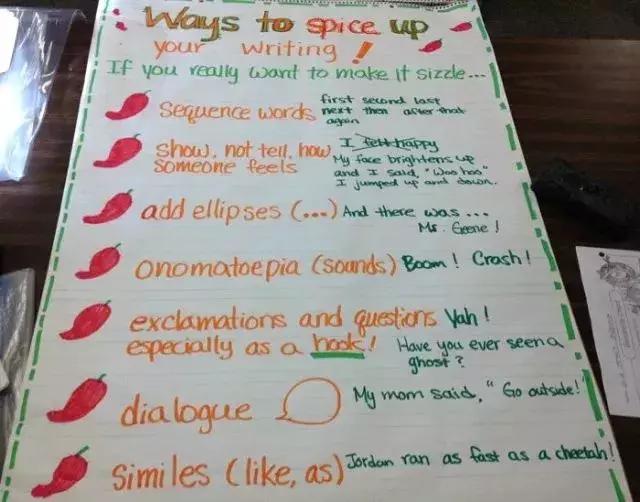 Ways to spice up
your writing!
If you really want to make it sizzle...
Sequence words first second last
next then after that
again
show, not tell, how
someone feels
I felt happy
My face brightens up
and I said, "Woo hoo"
I jumped up and down.
add ellipses (...) And there was ...
Ms. Geene!
onomatoepia (sounds) Boom! Crash!
exclamations and questions Yah!
especially as a hook!
Have you ever seen a
ghost?
dialogue
My mom said, "Go outside!"
Similes (like, as) Jordan ran as fast as a cheetah!